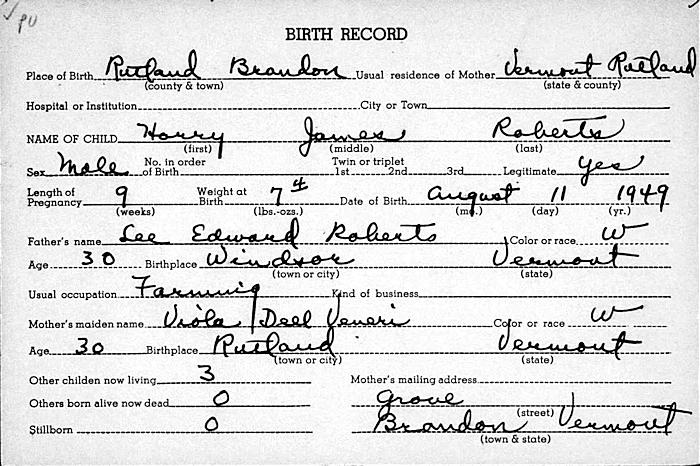 PV
BIRTH RECORD
Place of Birth Rutland Brandon Usual residence of Mother Vermont Rutland
(county & town) (state & county)
Hospital or Institution City or Town
NAME OF CHILD Harry James Roberts
(first) (middle) (last)
Sex Male No. in order of Birth Twin or triplet 1st 2nd 3rd Legitimate Yes
Length of Pregnancy 9 Weight at Birth 7 4 Date of Birth August 11 1949
(weeks) (lbs.-ozs.) (mo.) (day) (yr.)
Father's name Lee Edward Roberts Color or race W
Age 30 Birthplace Windsor Vermont
(town or city) (state)
Usual occupation Farming Kind of business
Mother's maiden name Viola Deel Veneri Color or race W
Age 30 Birthplace Rutland Vermont
(town or city) (state)
Other childen now living 3 Mother's mailing address
Others born alive now dead 0 Grove
(street)
Stillborn 0 Brandon Vermont
(town & state)